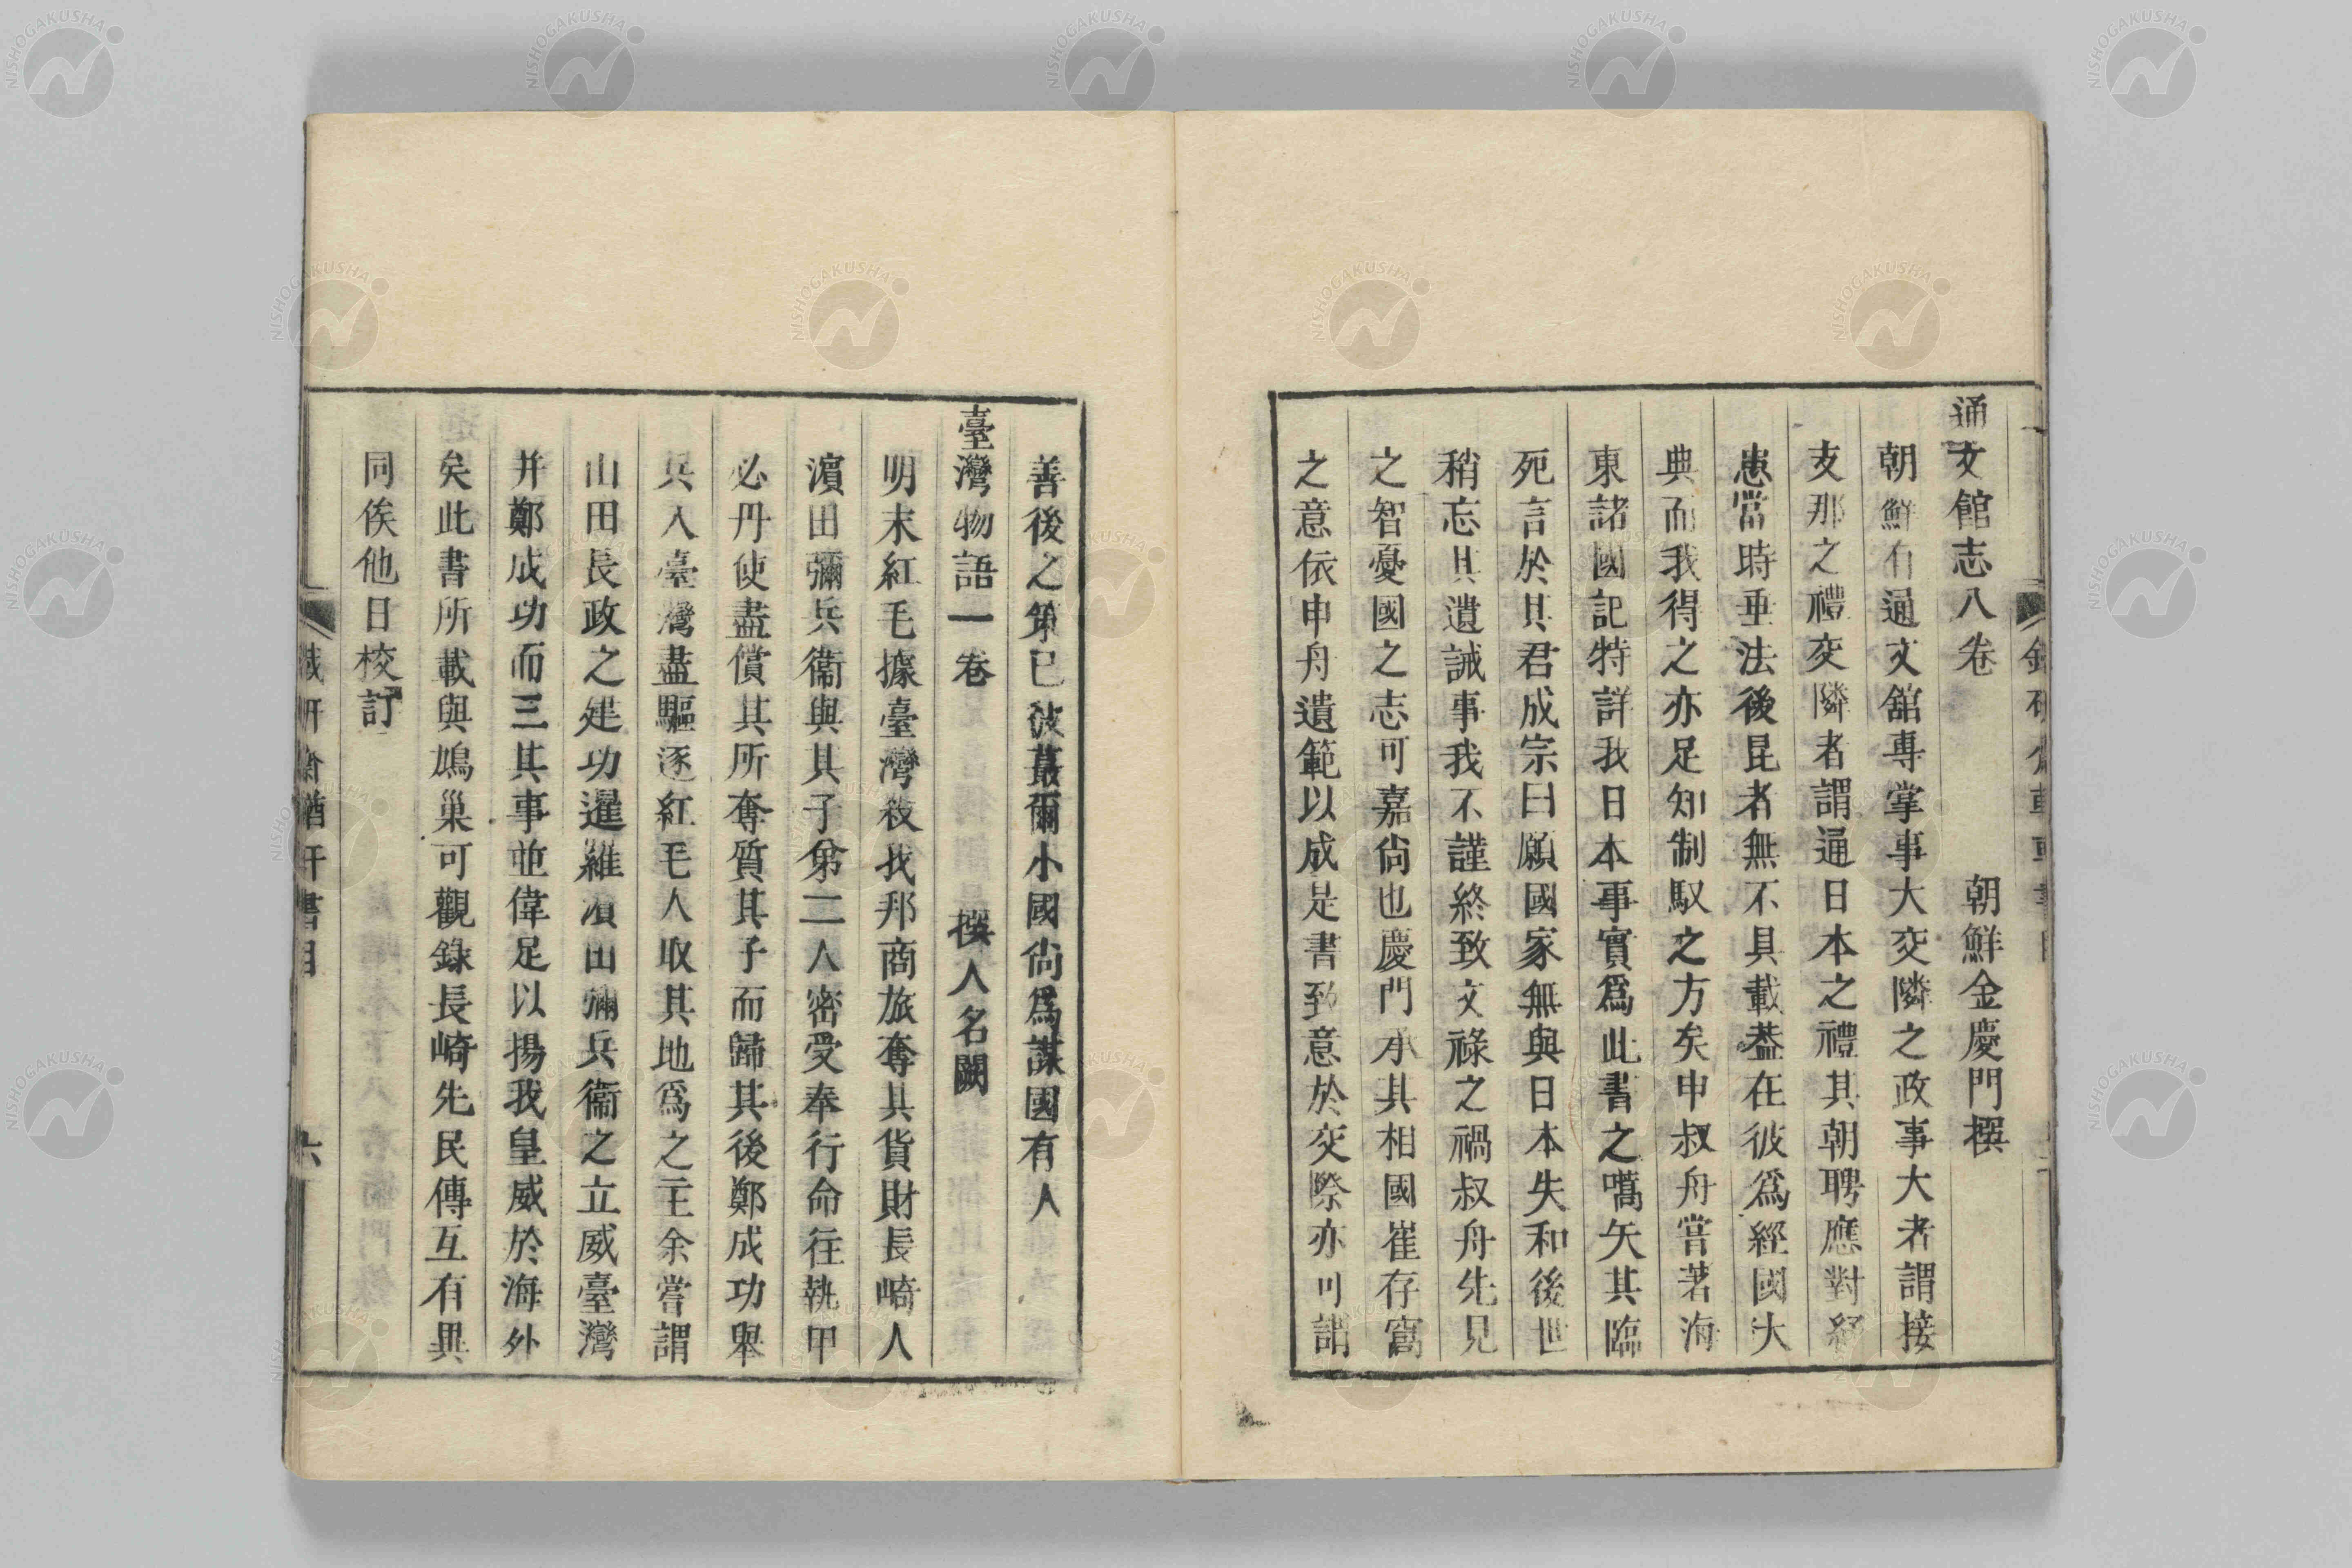 通文館志八卷 朝鮮金慶門撰
朝鮮有通文舘專掌事大交隣之政事大者謂接
支那之禮交隣者謂通日本之禮其朝聘應對經
患當時垂法後昆者無不具載葢在彼爲經國大
典而我得之亦足知制馭之方矣申叔舟嘗著海
東諸國記特詳我日本事實爲此書之嚆矢其臨
死言於其君成宗曰願國家無與日本失和後世
稍忘其遺誡事我不謹終致文祿之禍叔舟先見
之智憂國之志可嘉尙也慶門承其相國崔存窩
之意依申舟遺範以成是書致意於交際亦可謂
善後之策已彼蕞爾小國尙爲謀國有人
臺灣物語一卷 撰人名闕
明末紅毛據臺灣殺我邦商旅奪其貨財長崎人
濵田彌兵衞與其子弟二人密受奉行命往執甲
必丹使盡償其所奪質其子而歸其後鄭成功舉
兵入臺灣盡驅逐紅毛人取其地爲之主余嘗謂
山田長政之建功暹羅濵田彌兵衞之立威臺灣
并鄭成功而三其事並偉足以揚我皇威於海外
矣此書所載與鳩巢可觀錄長崎先民傳互有異
同俟他日校訂
六